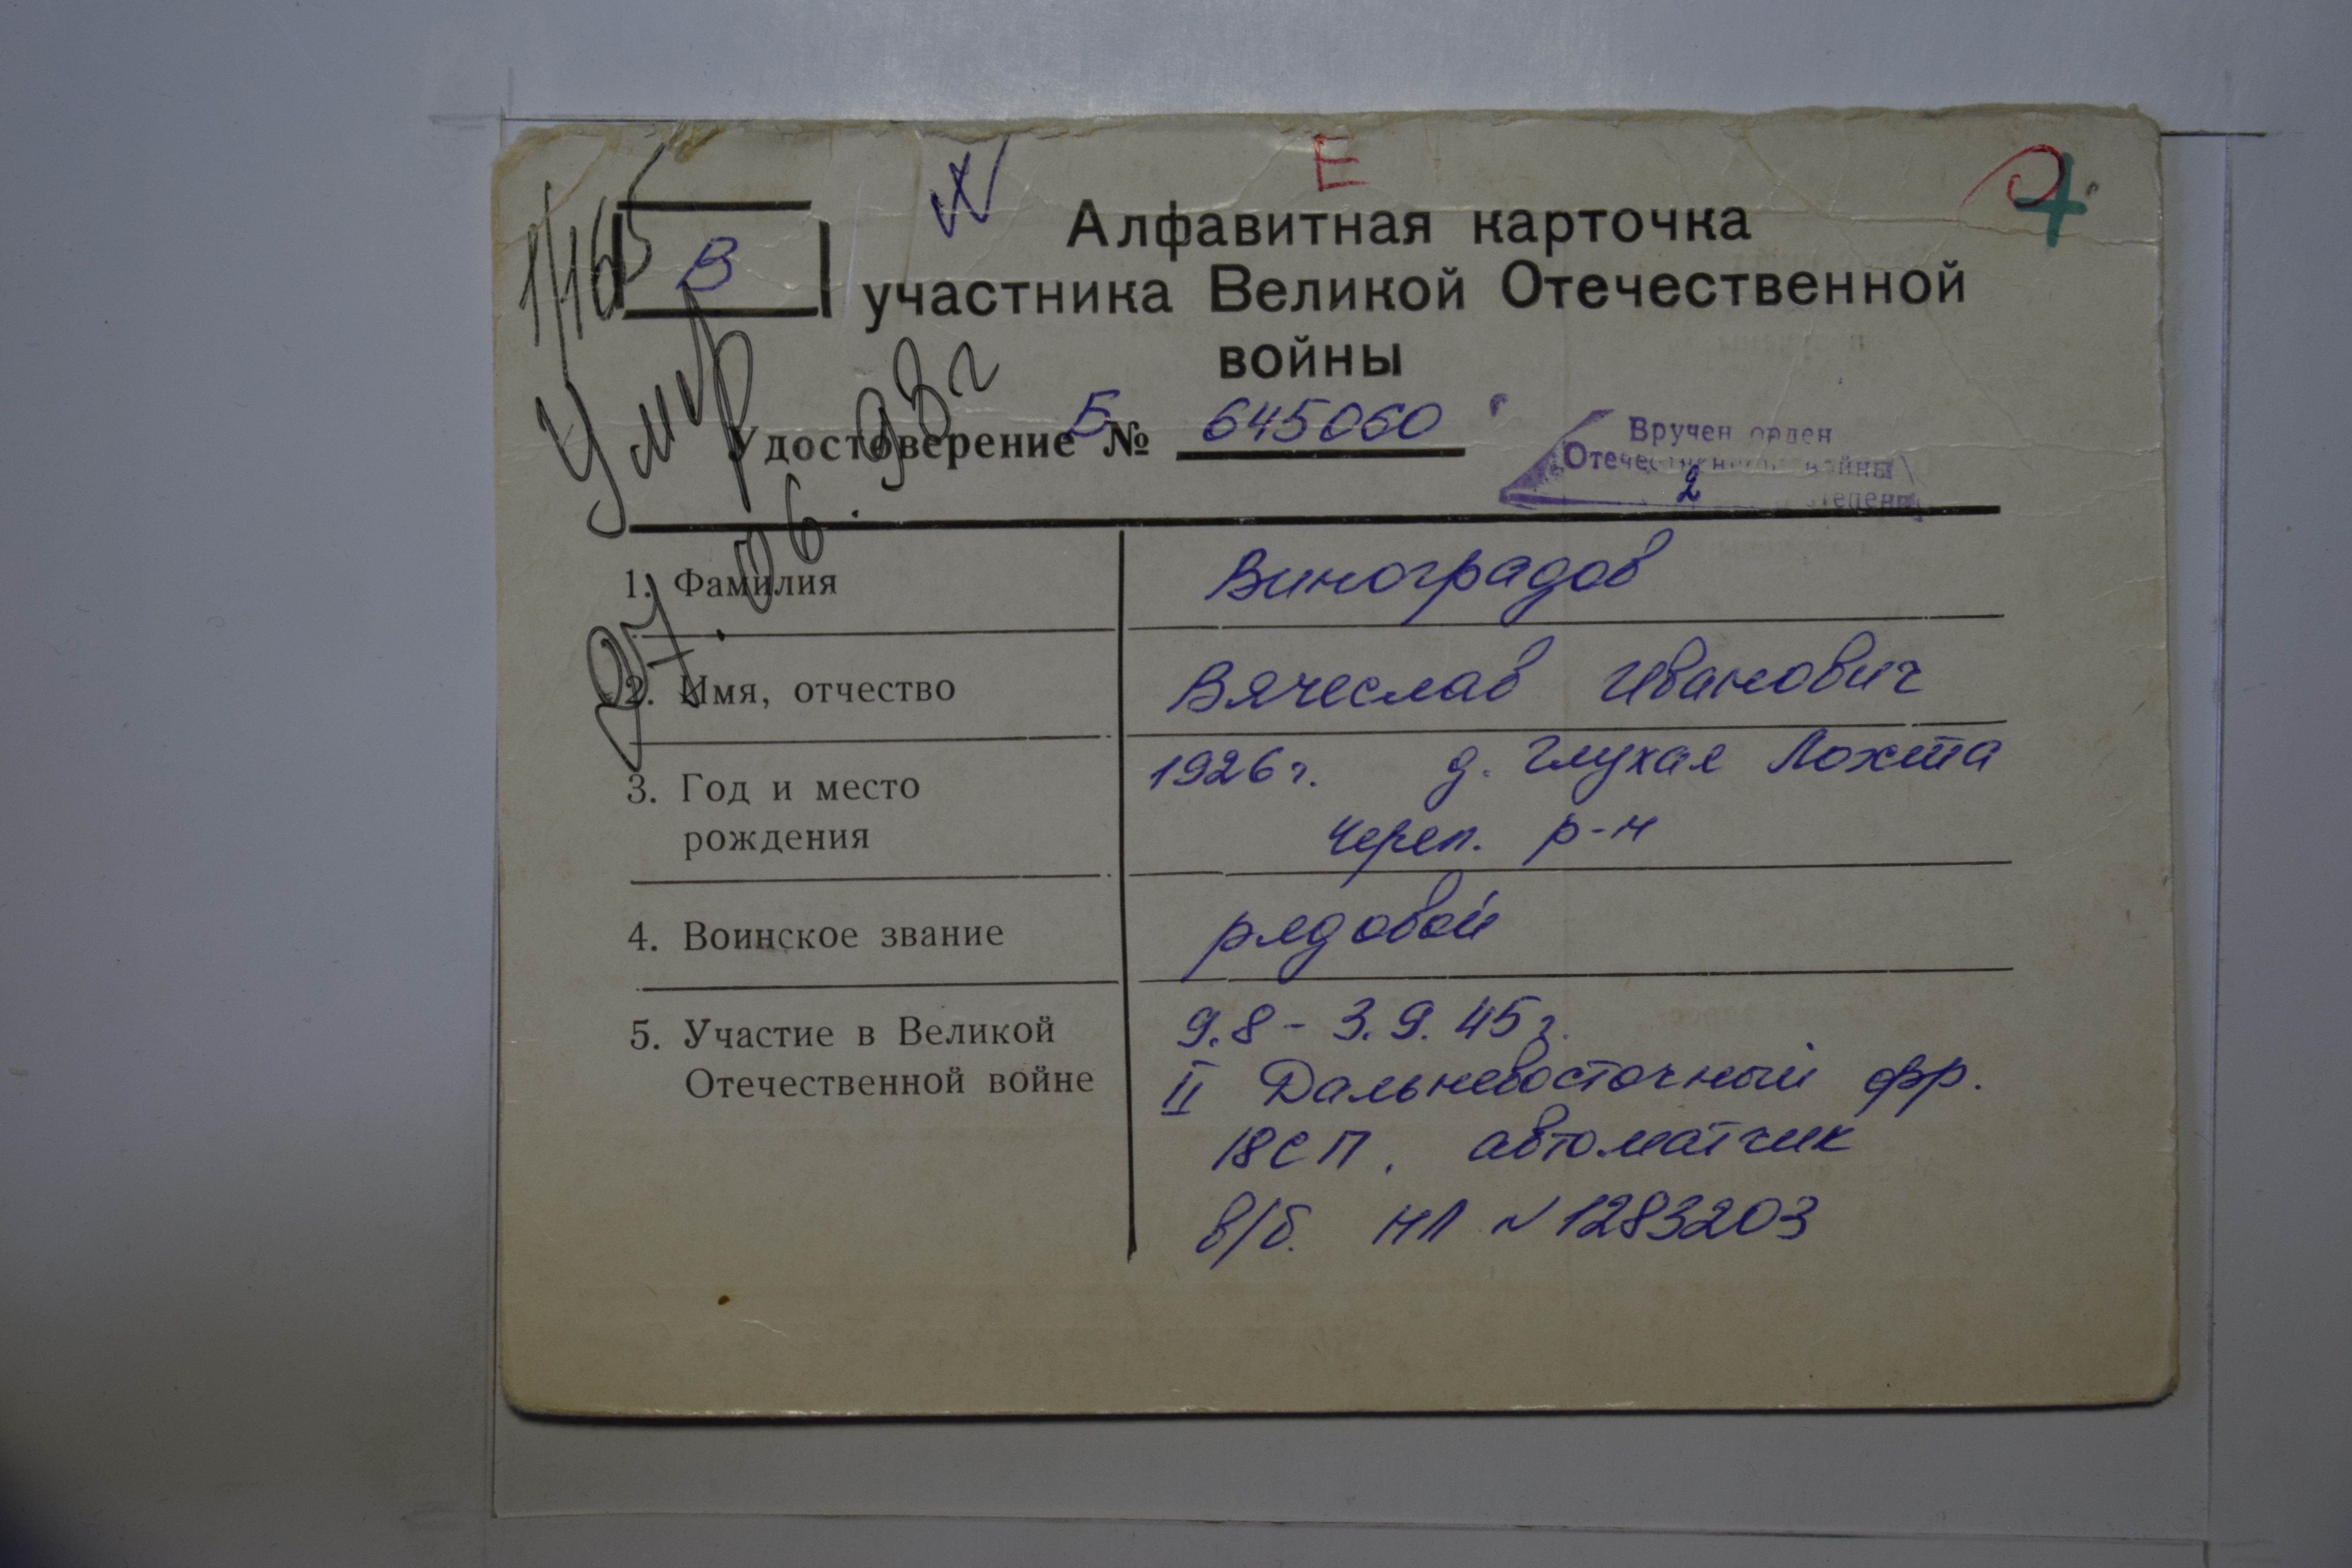 Е
4
1/165
В
Алфавитная карточка
участника Великой Отечественной
войны
Умир
27.06.93г
Удостоверение Б № 645060
Вручен орден
Отечественной войны
2 степени
1. Фамилия Виноградов
2. Имя, отчество Вячеслав Иванович
3. Год и место 1926 г. д. Глухая Лохта
рождения Череп. р-н
4. Воинское звание рядовой
5. Участие в Великой 9.8 - 3.9.45г.
Отечественной войне II Дальневосточный фр.
18 СП. автоматчик
в/б. НЛ №1283203